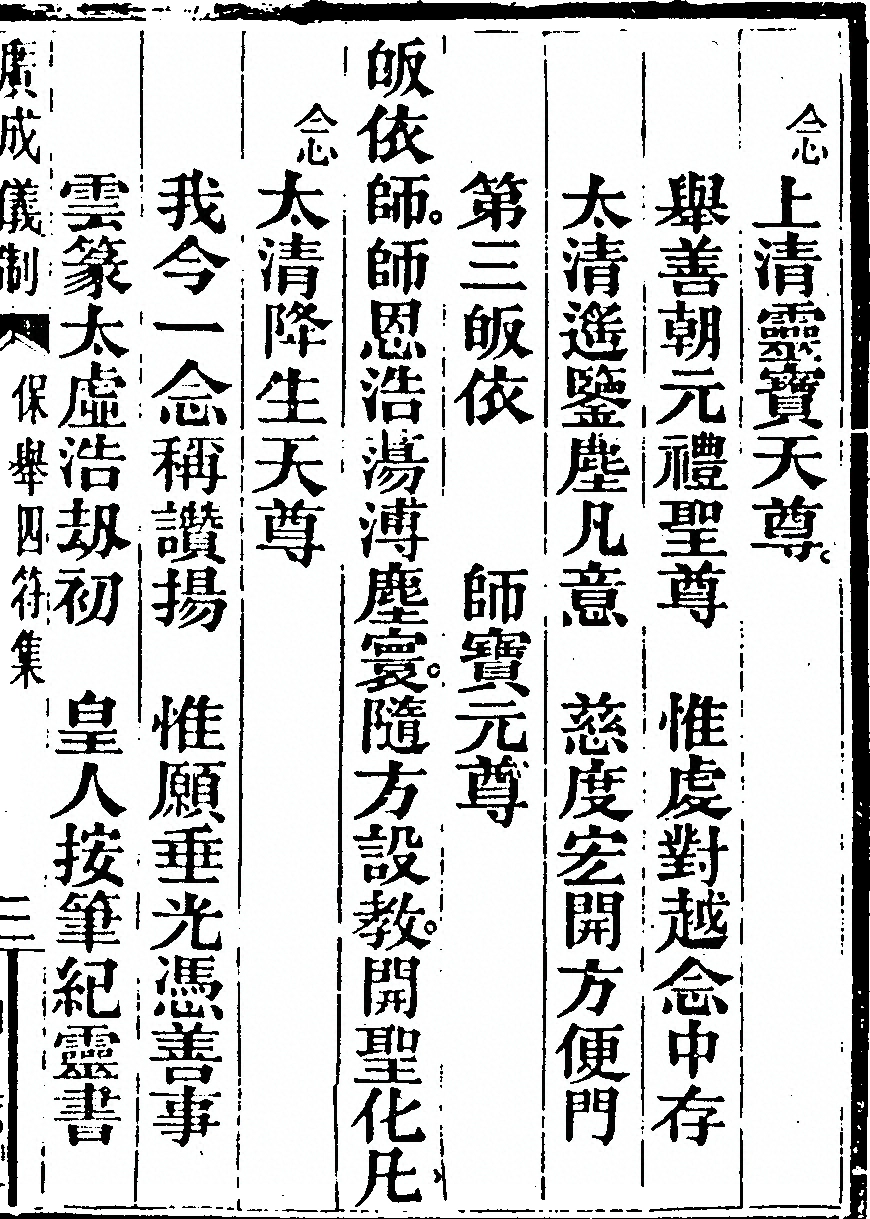 念上清靈寶天尊。
舉善朝元禮聖尊　惟虔對越念中存
太清遥鑒塵凡意　慈度宏開方便門
第三皈依　師寶元尊
皈依師。師恩浩蕩溥塵寰。隨方設教。開聖化凡、
念太清降生天尊
我今一念稱讚揚　惟願垂光憑善事
雲篆太虛浩劫初　皇人按筆紀靈書
廣成儀制　保舉四符集　三